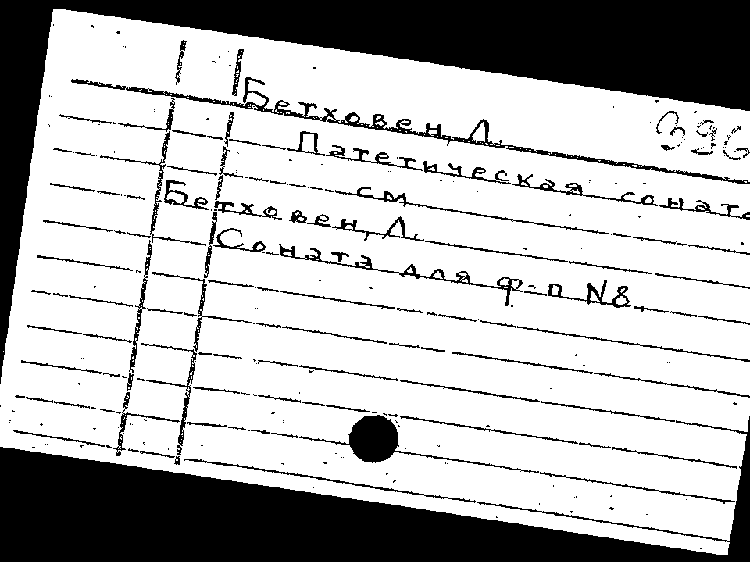 Бетховен, Л.
396
Патетическая соната
см
Бетховен, Л.
Соната для ф-п N8.